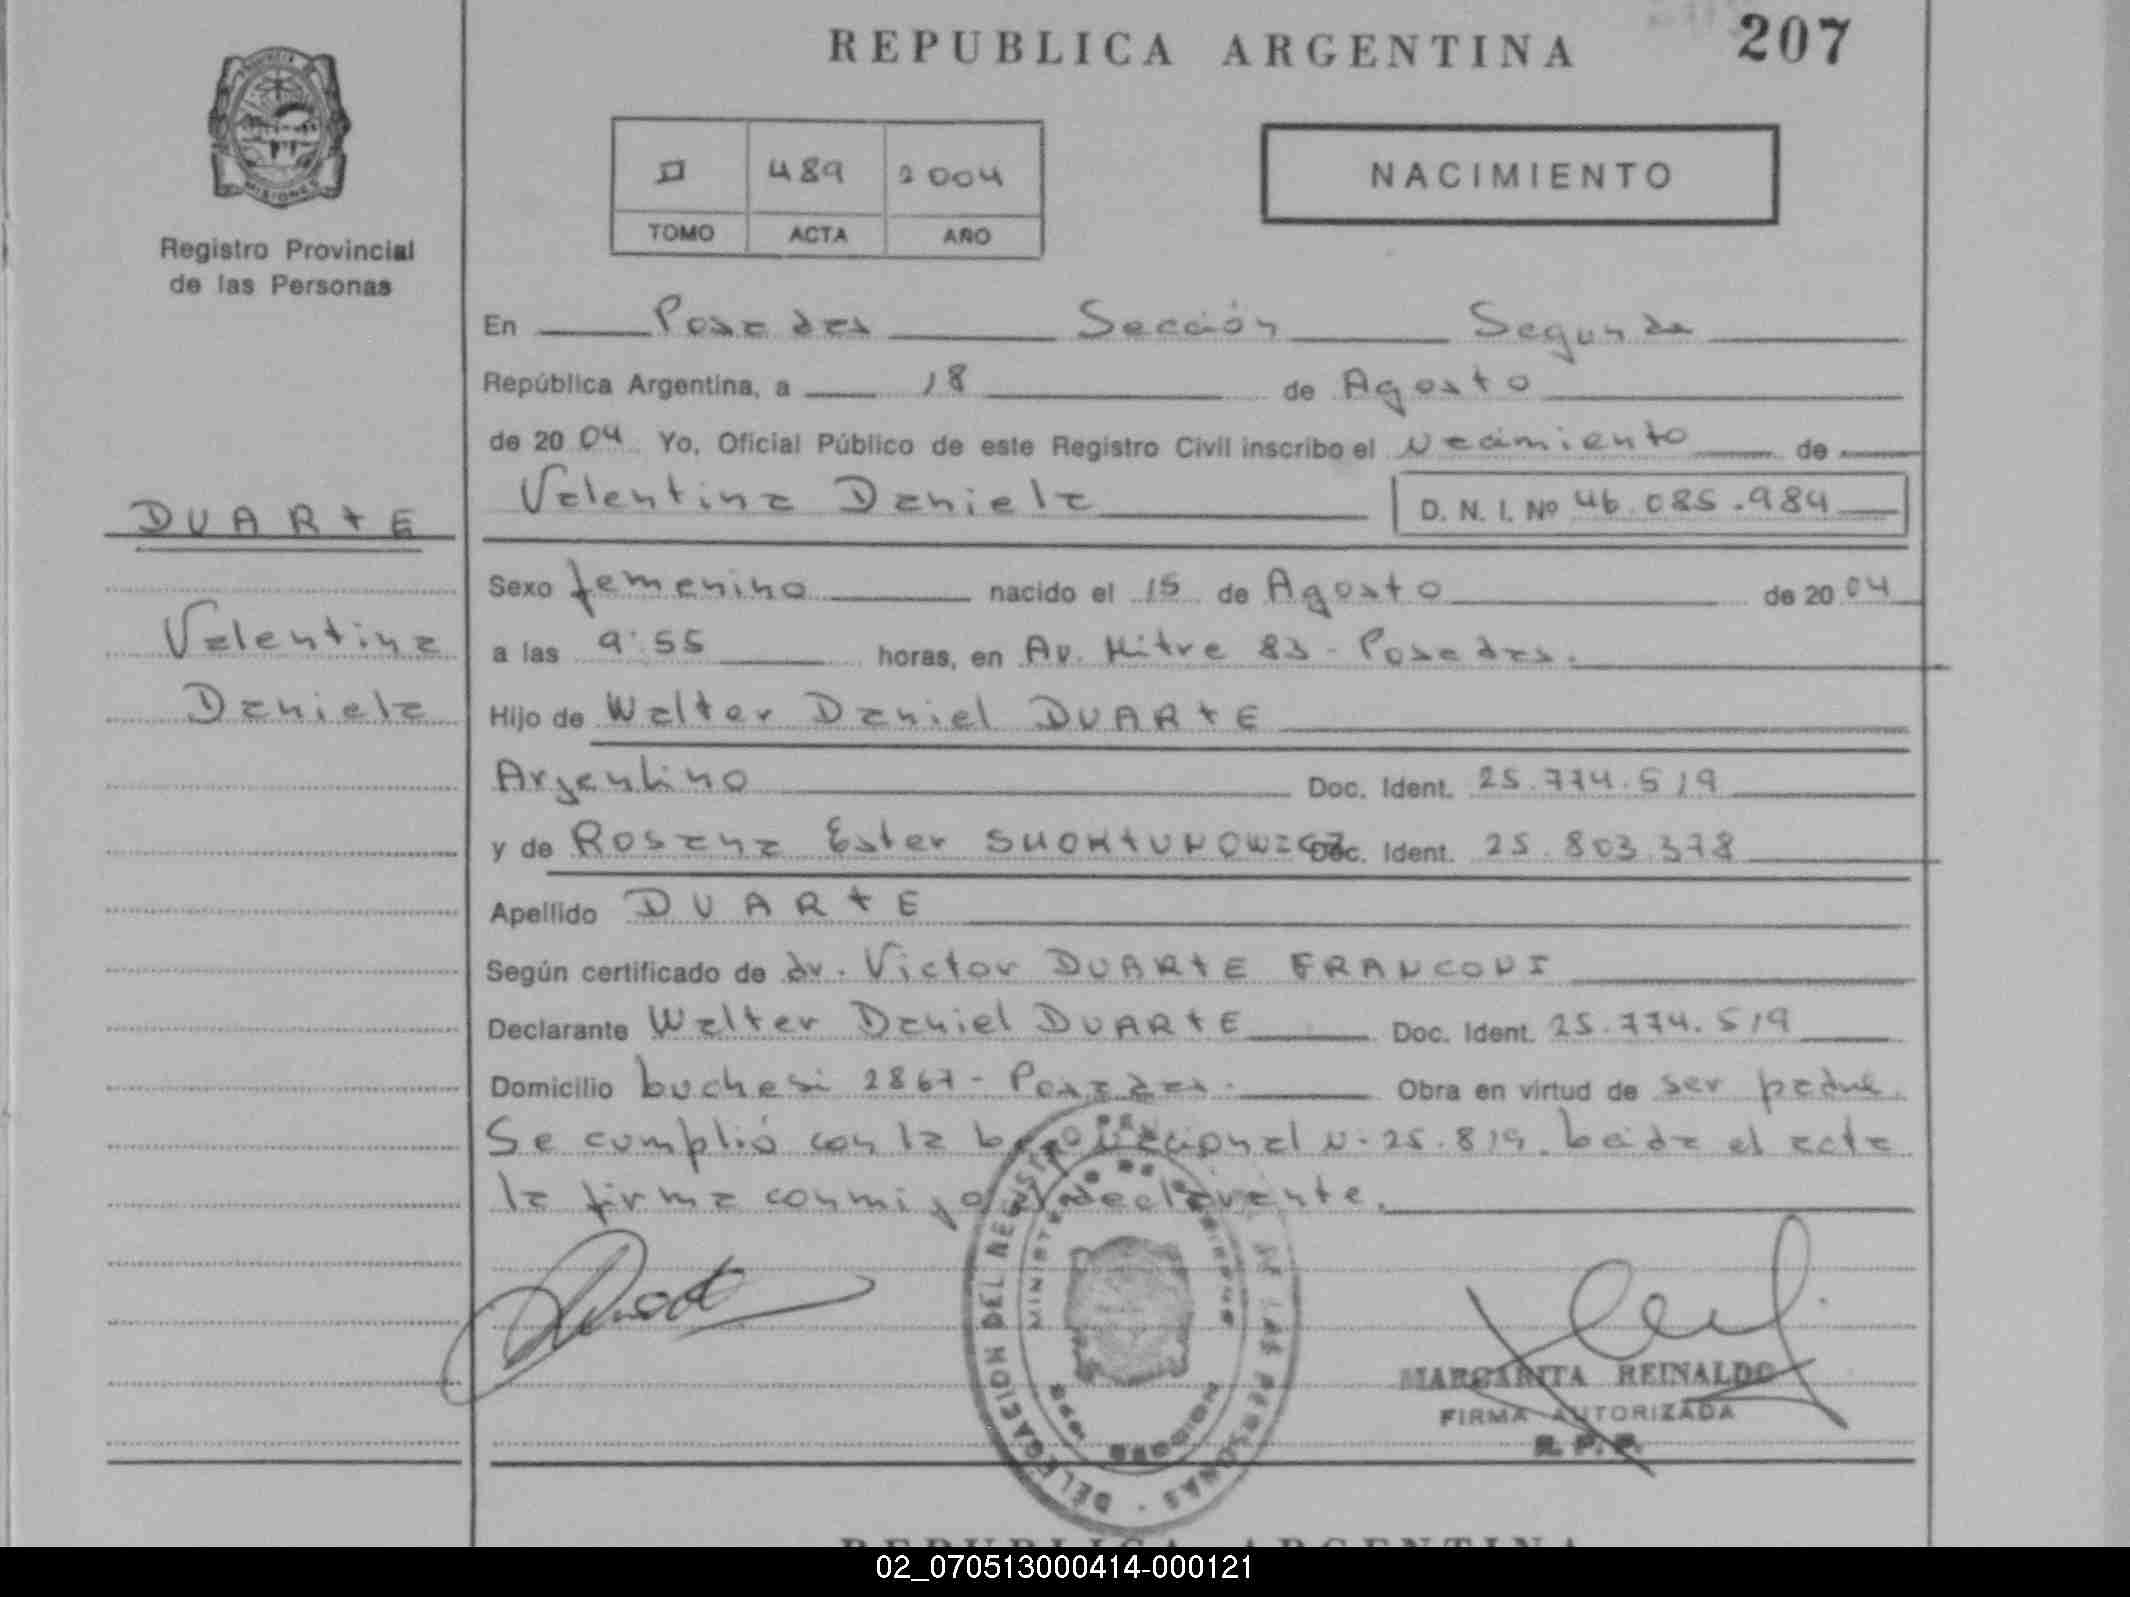 REPUBLICA ARGENTINA 207
MISIONES
Registro Provincial
de las Personas
II 489 2004
TOMO ACTA AÑO
NACIMIENTO
En Posadas Sección Segunda
República Argentina, a 18 de Agosto
de 20 04 Yo, Oficial Público de este Registro Civil inscribo el Nacimiento de
Valentina Daniela D. N. I. Nº 46.085.984
DUARTE
Valentina
Daniela
Sexo femenino nacido el 15 de Agosto de 20 04
a las 9:55 horas, en Av. Mitre 83 - Posadas.
Hijo de Walter Daniel DUARTE
Argentino Doc. Ident. 25.774.519
y de Rosana Ester Doc. Ident. 25.803.378
Apellido DUARTE
Según certificado de dr. Victor DUARTE FRANCONI
Declarante Walter Daniel DUARTE Doc. Ident. 25.774.519
Domicilio 2867 - Posadas. Obra en virtud de ser padre.
Se cumplió con la Ley Nacional N. 25.819. Leida el acta
la firma conmigo el declarante.
DELEGACION DEL REGISTRO DE LAS PERSONAS
MINISTERIO DE GOBIERNO
MISIONES
MARGARITA REINALDO
FIRMA AUTORIZADA
R. P. P.
REPUBLICA ARGENTINA
02_070513000414-000121